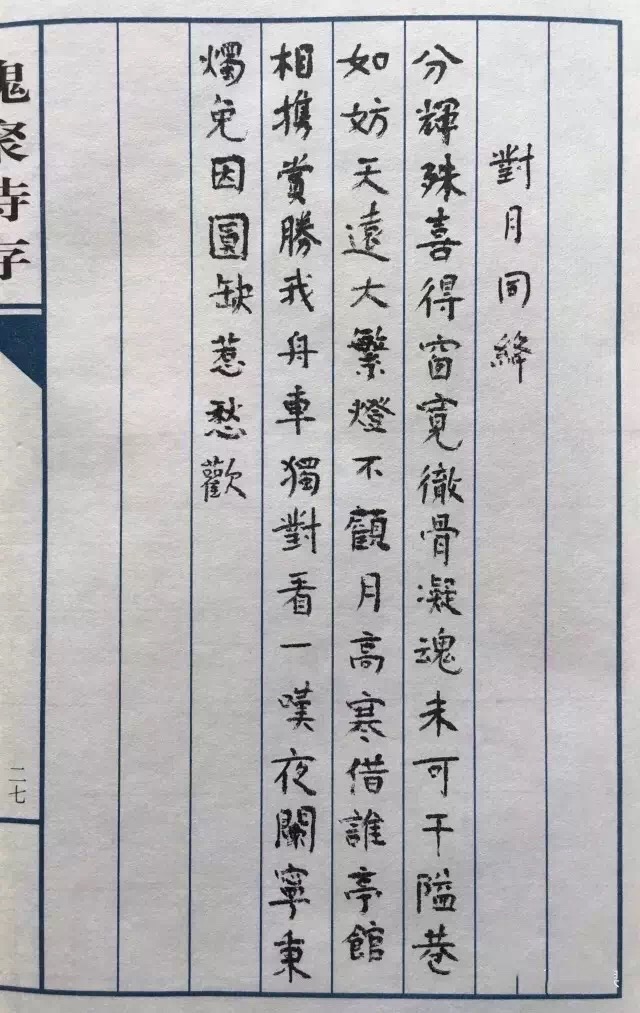 對月同絳
分輝殊喜得窗寬徹骨凝魂未可干隘巷
如妨天遠大繁燈不顧月高寒借誰亭館
相携賞勝我舟車獨對看一嘆夜闌寧秉
燭免因圓缺惹愁歡
槐聚詩存
二七